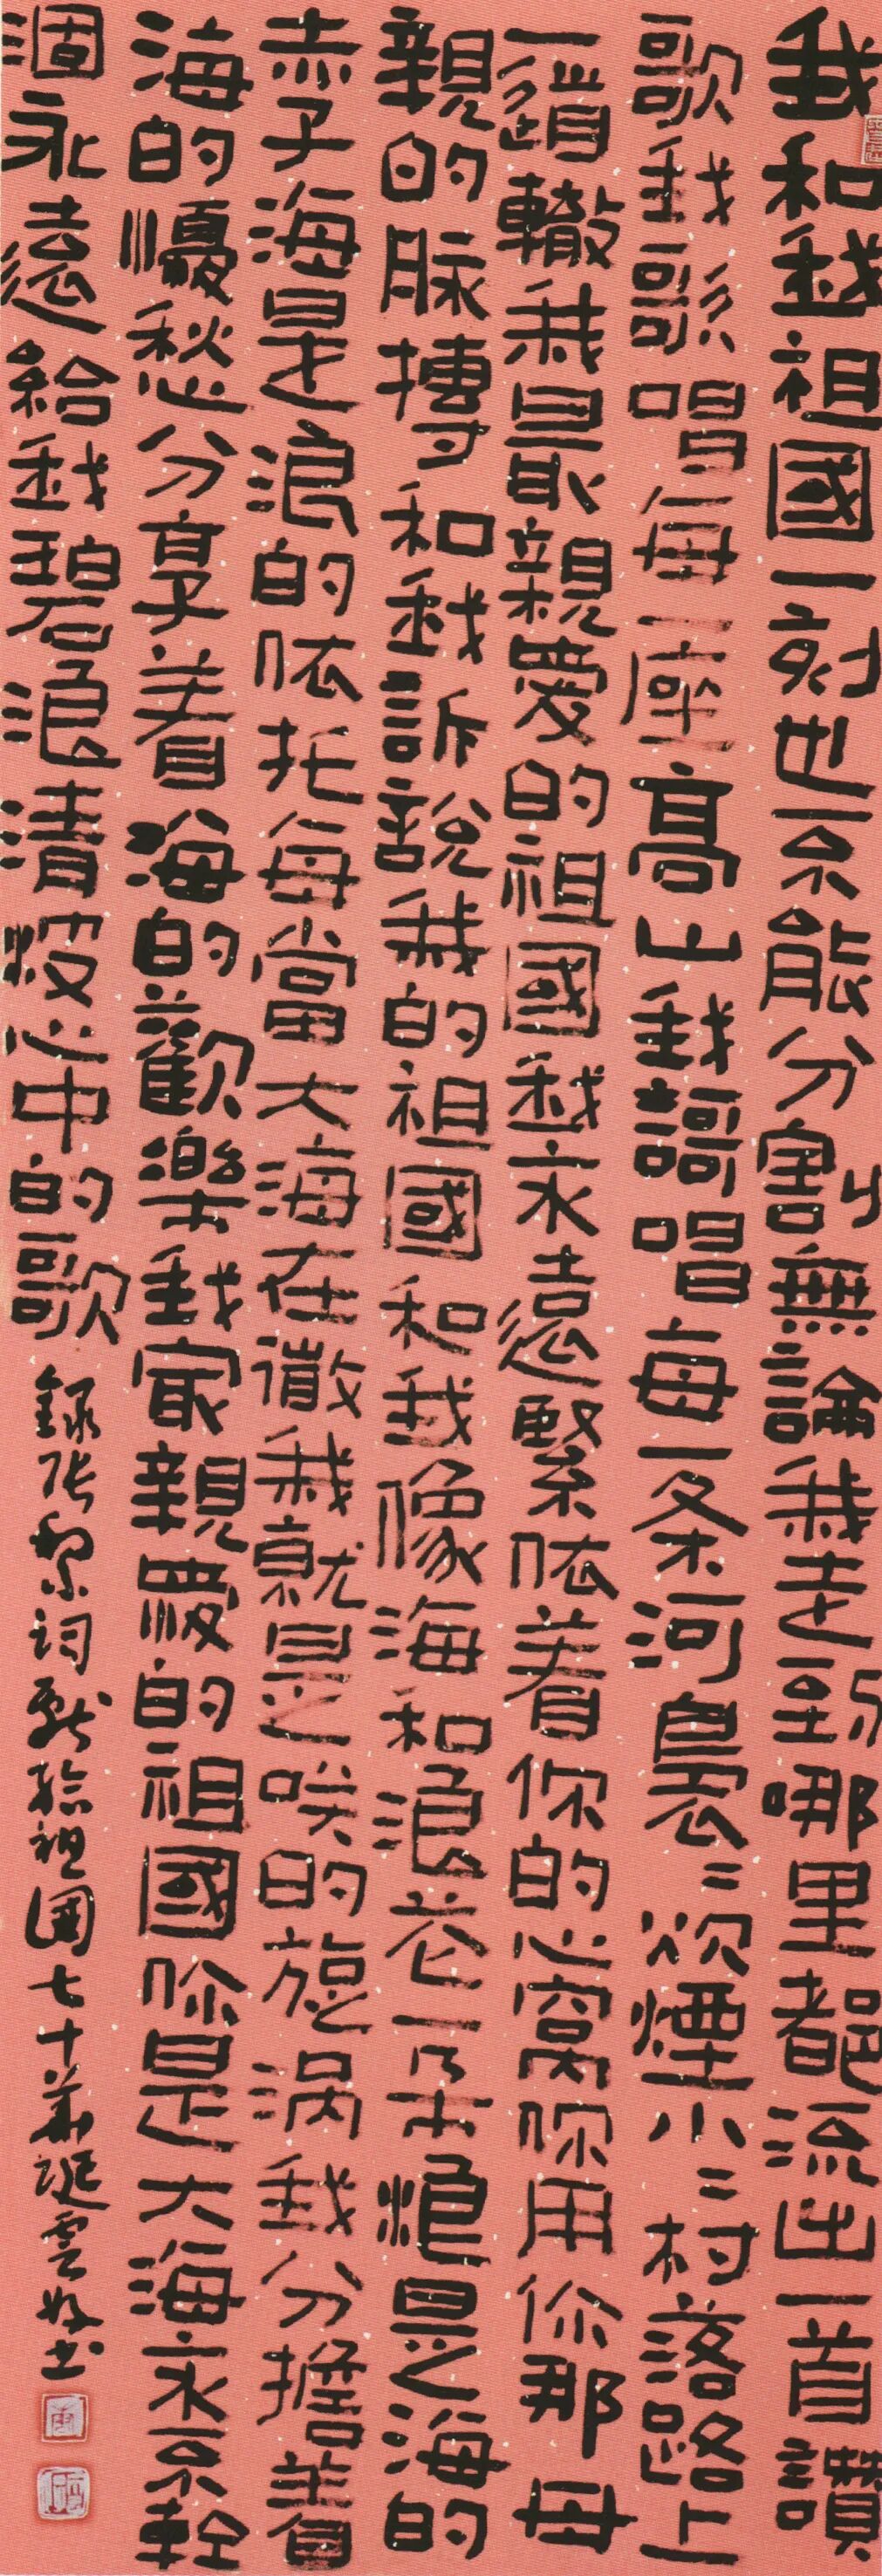 我和我祖國一刻也不能分割無論我走到哪里都流出一首讚
歌我歌唱每一座高山我謌唱每一条河裊〻炊煙小〻村落路上
一道轍我最親愛的祖國我永遠緊依着你的心窩你用你那母
親的脉搏和我訴説我的祖國和我像海和浪花一朵浪是海的
赤子海是浪的依托每當大海在微我就是咲的旋涡我分擔着
海的憂愁分享着海的歡樂我最親愛的祖國你是大海永不乾
涸永遠給我碧浪清波心中的歌
錄張黎词獻给祖国七十華誕雲好书